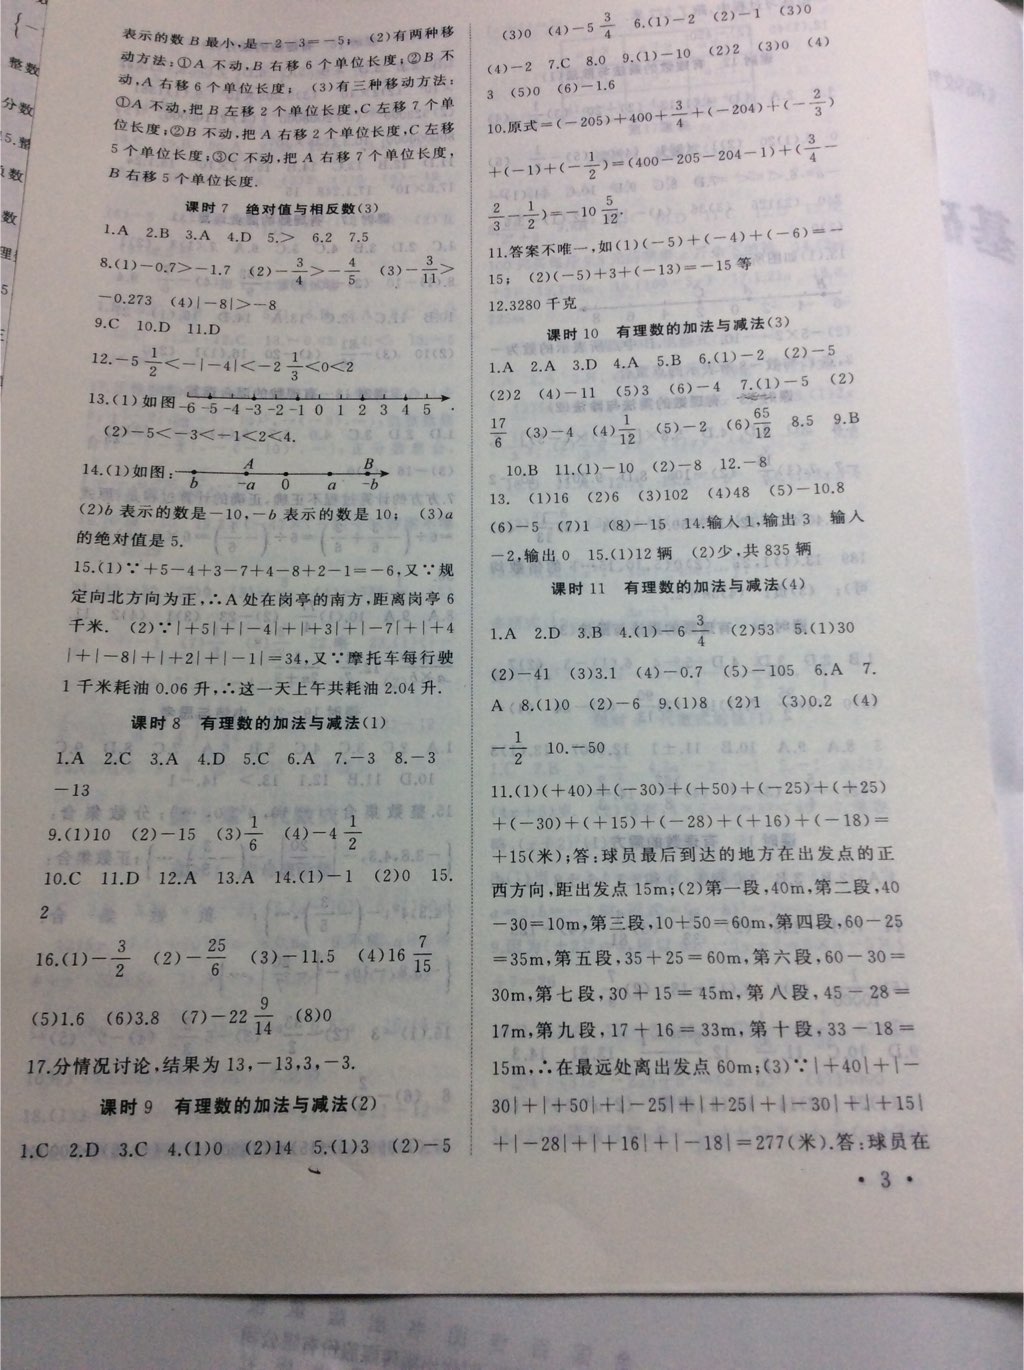 表示的数 B 最小,是-2-3=-5; (2)有两种移
动方法:①A 不动,B 右移 6 个单位长度;②B 不
动,A 右移 6 个单位长度; (3)有三种移动方法:
①A 不动,把 B 左移 2 个单位长度,C 左移 7 个单
位长度;②B 不动,把 A 右移 2 个单位长度,C 左移
5 个单位长度;③C 不动,把 A 右移 7 个单位长度,
B 右移 5 个单位长度.
课时 7 绝对值与相反数(3)
1.A 2.B 3.A 4.D 5.> 6.2 7.5
8.(1)-0.7>-1.7 (2)-3/4>-4/5 (3)-3/11>
-0.273 (4)|-8|>-8
9.C 10.D 11.D
12.-5 1/2<-|-4|<-2 1/3<0<2
13.(1)如图 -6 -5 -4 -3 -2 -1 0 1 2 3 4 5 .
(2)-5<-3<-1<2<4.
14.(1)如图: A B b -a 0 a -b
(2)b 表示的数是-10,-b 表示的数是 10; (3)a
的绝对值是 5.
15.(1)∵+5-4+3-7+4-8+2-1=-6,又∵规
定向北方向为正,∴A 处在岗亭的南方,距离岗亭 6
千米. (2)∵|+5|+|-4|+|+3|+|-7|+|+4
|+|-8|+|+2|+|-1|=34,又∵摩托车每行驶
1 千米耗油 0.06 升,∴这一天上午共耗油 2.04 升.
课时 8 有理数的加法与减法(1)
1.A 2.C 3.A 4.D 5.C 6.A 7.-3 8.-3
-13
9.(1)10 (2)-15 (3)1/6 (4)-4 1/2
10.C 11.D 12.A 13.A 14.(1)-1 (2)0 15.
2
16.(1)-3/2 (2)-25/6 (3)-11.5 (4)16 7/15
(5)1.6 (6)3.8 (7)-22 9/14 (8)0
17.分情况讨论,结果为 13,-13,3,-3.
课时 9 有理数的加法与减法(2)
1.C 2.D 3.C 4.(1)0 (2)14 5.(1)3 (2)-5
(3)0 (4)-5 3/4 6.(1)-2 (2)-1 (3)0
(4)-2 7.C 8.0 9.(1)-10 (2)2 (3)0 (4)
3 (5)0 (6)-1.6
10.原式=(-205)+400+3/4+(-204)+(-2/3)
+(-1)+(-1/2)=(400-205-204-1)+(3/4-
2/3-1/2)=-10 5/12.
11.答案不唯一,如(1)(-5)+(-4)+(-6)=-
15; (2)(-5)+3+(-13)=-15 等
12.3280 千克
课时 10 有理数的加法与减法(3)
1.A 2.A 3.D 4.A 5.B 6.(1)-2 (2)-5
(2)2 (4)-11 (5)3 (6)-4 7.(1)-5 (2)
17/6 (3)-4 (4)1/12 (5)-2 (6)65/12 8.5 9.B
10.B 11.(1)-10 (2)-8 12.-8
13. (1)16 (2)6 (3)102 (4)48 (5)-10.8
(6)-5 (7)1 (8)-15 14.输入 1,输出 3 输入
-2,输出 0 15.(1)12 辆 (2)少,共 835 辆
课时 11 有理数的加法与减法(4)
1.A 2.D 3.B 4.(1)-6 3/4 (2)53 5.(1)30
(2)-41 (3)3.1 (4)-0.7 (5)-105 6.A 7.
A 8.(1)0 (2)-6 9.(1)8 (2)1 (3)0.2 (4)
-1/2 10.-50
11.(1)(+40)+(-30)+(+50)+(-25)+(+25)
+(-30)+(+15)+(-28)+(+16)+(-18)=
+15(米);答:球员最后到达的地方在出发点的正
西方向,距出发点 15m;(2)第一段,40m,第二段,40
-30=10m,第三段,10+50=60m,第四段,60-25
=35m,第五段,35+25=60m,第六段,60-30=
30m,第七段,30+15=45m,第八段,45-28=
17m,第九段,17+16=33m,第十段,33-18=
15m,∴在最远处离出发点 60m;(3)∵|+40|+|-
30|+|+50|+|-25|+|+25|+|-30|+|+15|
+|-28|+|+16|+|-18|=277(米).答:球员在
· 3 ·